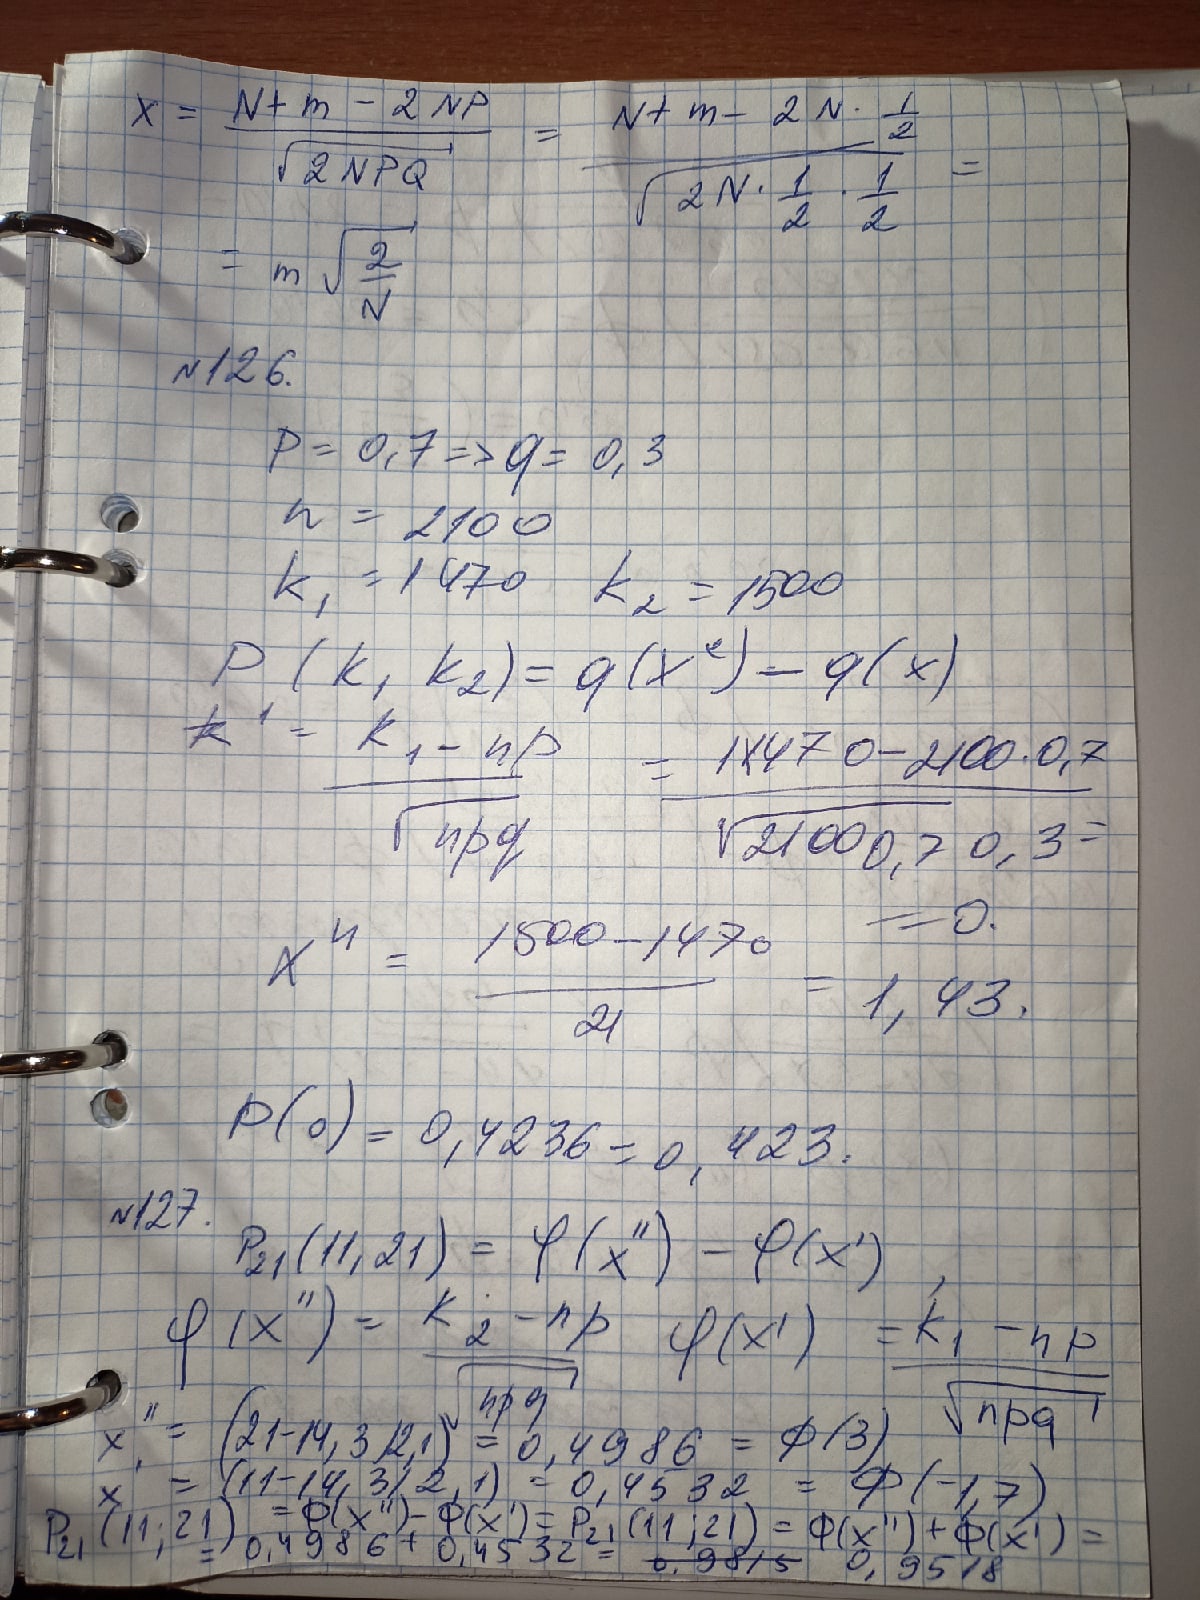 x = (N + m - 2NP) / √(2NPQ) = (N + m - 2N · 1/2) / √(2N · 1/2 · 1/2) =
= m √(2/N)
№126.
P = 0,7 => q = 0,3
n = 2100
k₁ = 1470 k₂ = 1500
P (k₁ k₂) = φ(x") - φ(x)
x' = (k₁ - np) / √(npq) = (1470 - 2100 · 0,7) / √(2100 0,7 0,3) =
= 0.
x" = (1500 - 1470) / 21 = 1,43.
P(0) = 0,4236 = 0,423.
№127.
P₂₁(11, 21) = φ(x") - φ(x'),
φ(x") = (k₂ - np) / √(npq) φ(x') = (k₁ - np) / √(npq)
x" = (21-14,3/2,1) = 0,4986 = Ф(3)
x' = (11-14,3/2,1) = 0,4532 = Ф(-1,7)
P₂₁(11;21) = Ф(x") - Ф(x') = P₂₁(11;21) = Ф(x") + Ф(x') =
= 0,4986 + 0,4532 = 0,9815 0,9518